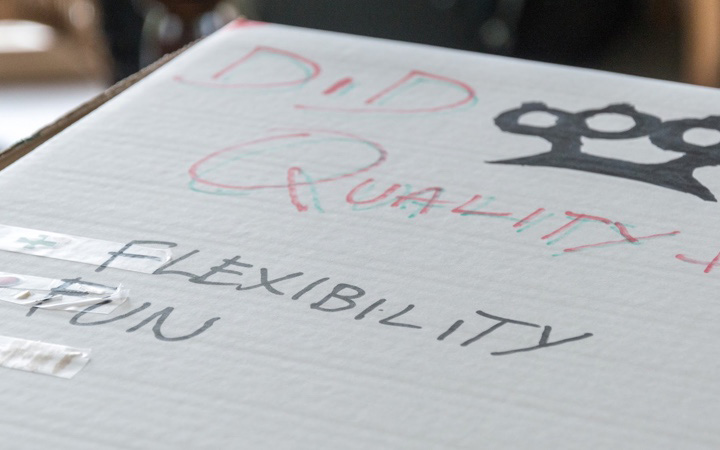 DiD
QUALITY +
FLEXIBILITY
FUN